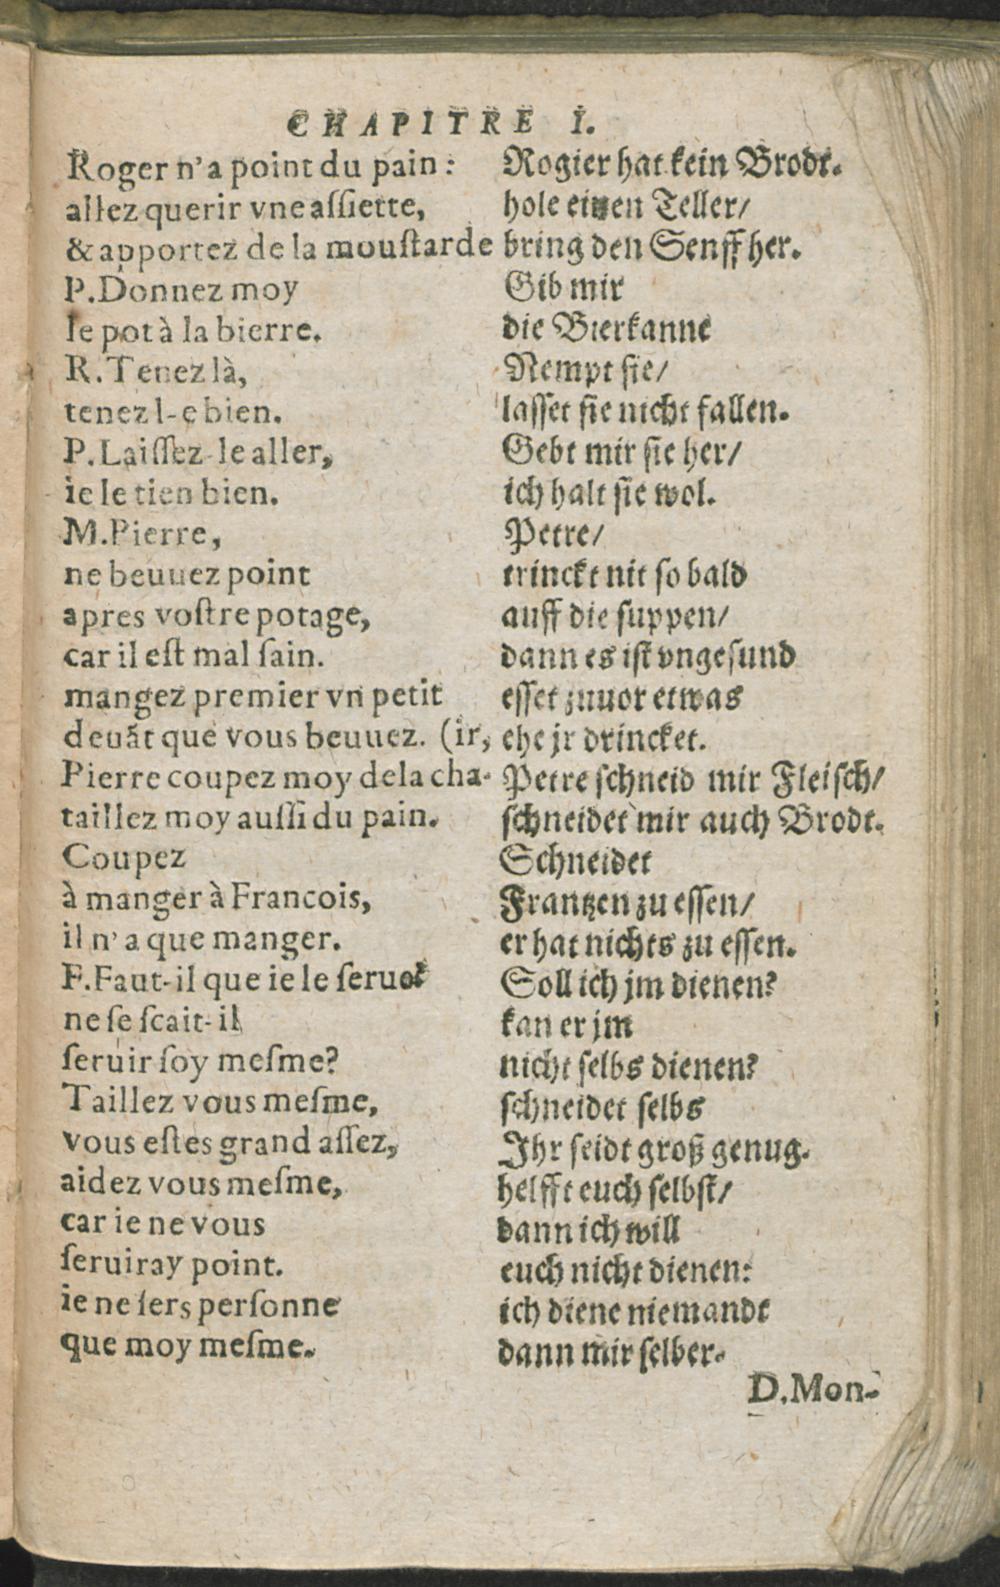 CHAPITRE I.
Roger n'a point du pain :
allez querir vne aſſiette,
& apportez de la mouſtarde
P. Donnez moy
le pot à la bierre.
R. Tenez là,
tenez l-e bien.
P. Laiſſez-le aller,
ie le tien bien.
M. Pierre,
ne beuuez point
apres voſtre potage,
car il eſt mal ſain.
mangez premier vn petit
deuāt que vous beuuez. (ir,
Pierre coupez moy de la cha-
taillez moy auſſi du pain.
Coupez
à manger à Francois,
il n'a que manger.
F. Faut-il que ie le
ne ſe ſcait-il
ſeruir ſoy meſme?
Taillez vous meſme,
vous eſtes grand aſſez,
aidez vous meſme,
car ie ne vous
ſeruiray point.
ie ne ſers perſonne
que moy meſme.
Rogier hat kein Brodt.
hole einen Teller/
bring den Senff her.
Gib mir
die Bierkanne
Nempt ſie/
laſſet ſie nicht fallen.
Gebt mir ſie her/
ich halt ſie wol.
Petre/
trinckt nit ſo bald
auff die ſuppen/
dann es iſt vngeſund
eſſet zuuor etwas
ehe jr drincket.
Petre ſchneid mir Fleiſch/
ſchneidet mir auch Brodt.
Schneidet
Frantzen zu eſſen/
er hat nichts zu eſſen.
Soll ich jm dienen?
kan er jm
nicht ſelbs dienen?
ſchneidet ſelbs
Ihr ſeidt groß genug.
helfft euch ſelbſt/
dann ich will
euch nicht dienen:
ich diene niemandt
dann mir ſelber.
D. Mon-